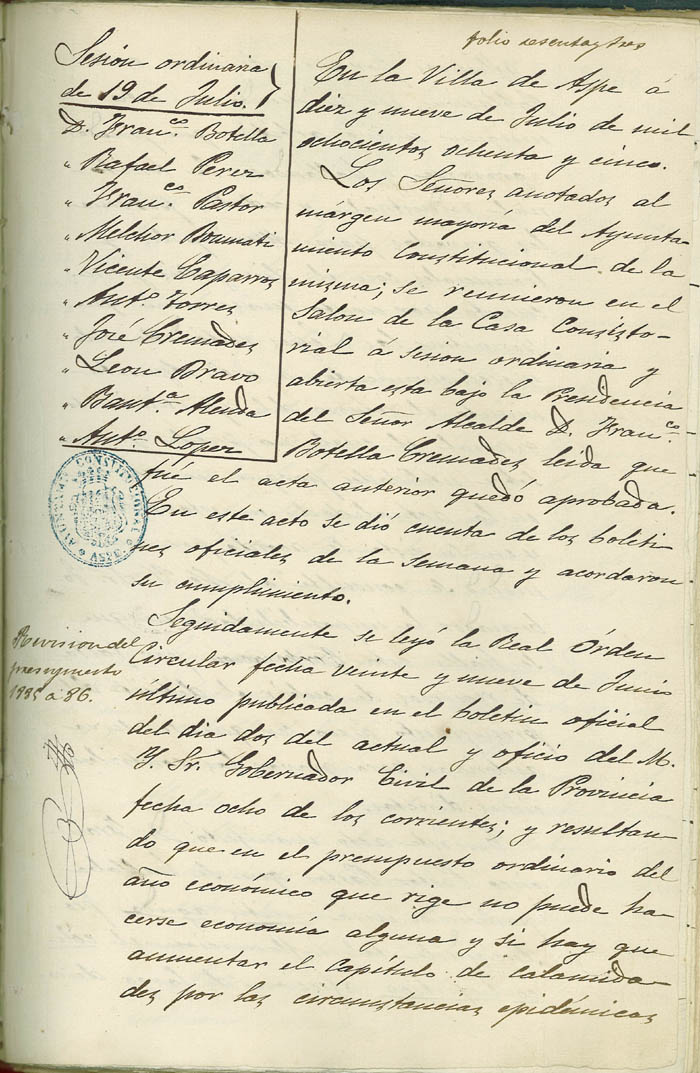 folio sesenta y tres
Sesión ordinaria
de 19 de Julio.
D. Fran.co Botella
" Rafael Perez
" Fran.co Pastor
" Melchor Boumati
" Vicente Caparros
" Ant.o Torres
" José Cremades
" Leon Bravo
" Baut.a Alenda
" Ant.o Lopez
En la Villa de Aspe á
diez y nueve de Julio de mil
ochocientos ochenta y cinco.
Los Señores anotados al
márgen mayoría del Ayunta-
miento Constitucional de la
misma; se reunieron en el
Salon de la Casa Consisto-
rial á sesion ordinaria y
abierta esta bajo la Presidencia
del Señor Alcalde D. Fran.co
Botella Cremades, leida que
fué el acta anterior quedó aprobada.
En este acto se dió cuenta de los boleti
nes oficiales de la semana y acordaron
su cumplimiento.
AYUNTAMTO CONSTITUCIONAL
ASPE
Revision del
presupuesto
1885 á 86.
Seguidamente se leyó la Real Órden
Circular fecha veinte y nueve de Junio
último publicada en el boletin oficial
del dia dos del actual y oficio del M.
Y. Sr. Gobernador Civil de la Provincia
fecha ocho de los corrientes; y resultan-
do que en el presupuesto ordinario del
año económico que rige no puede ha-
cerse economía alguna y si hay que
aumentar el Capítulo de calamida-
des por las circunstancias epidémicas